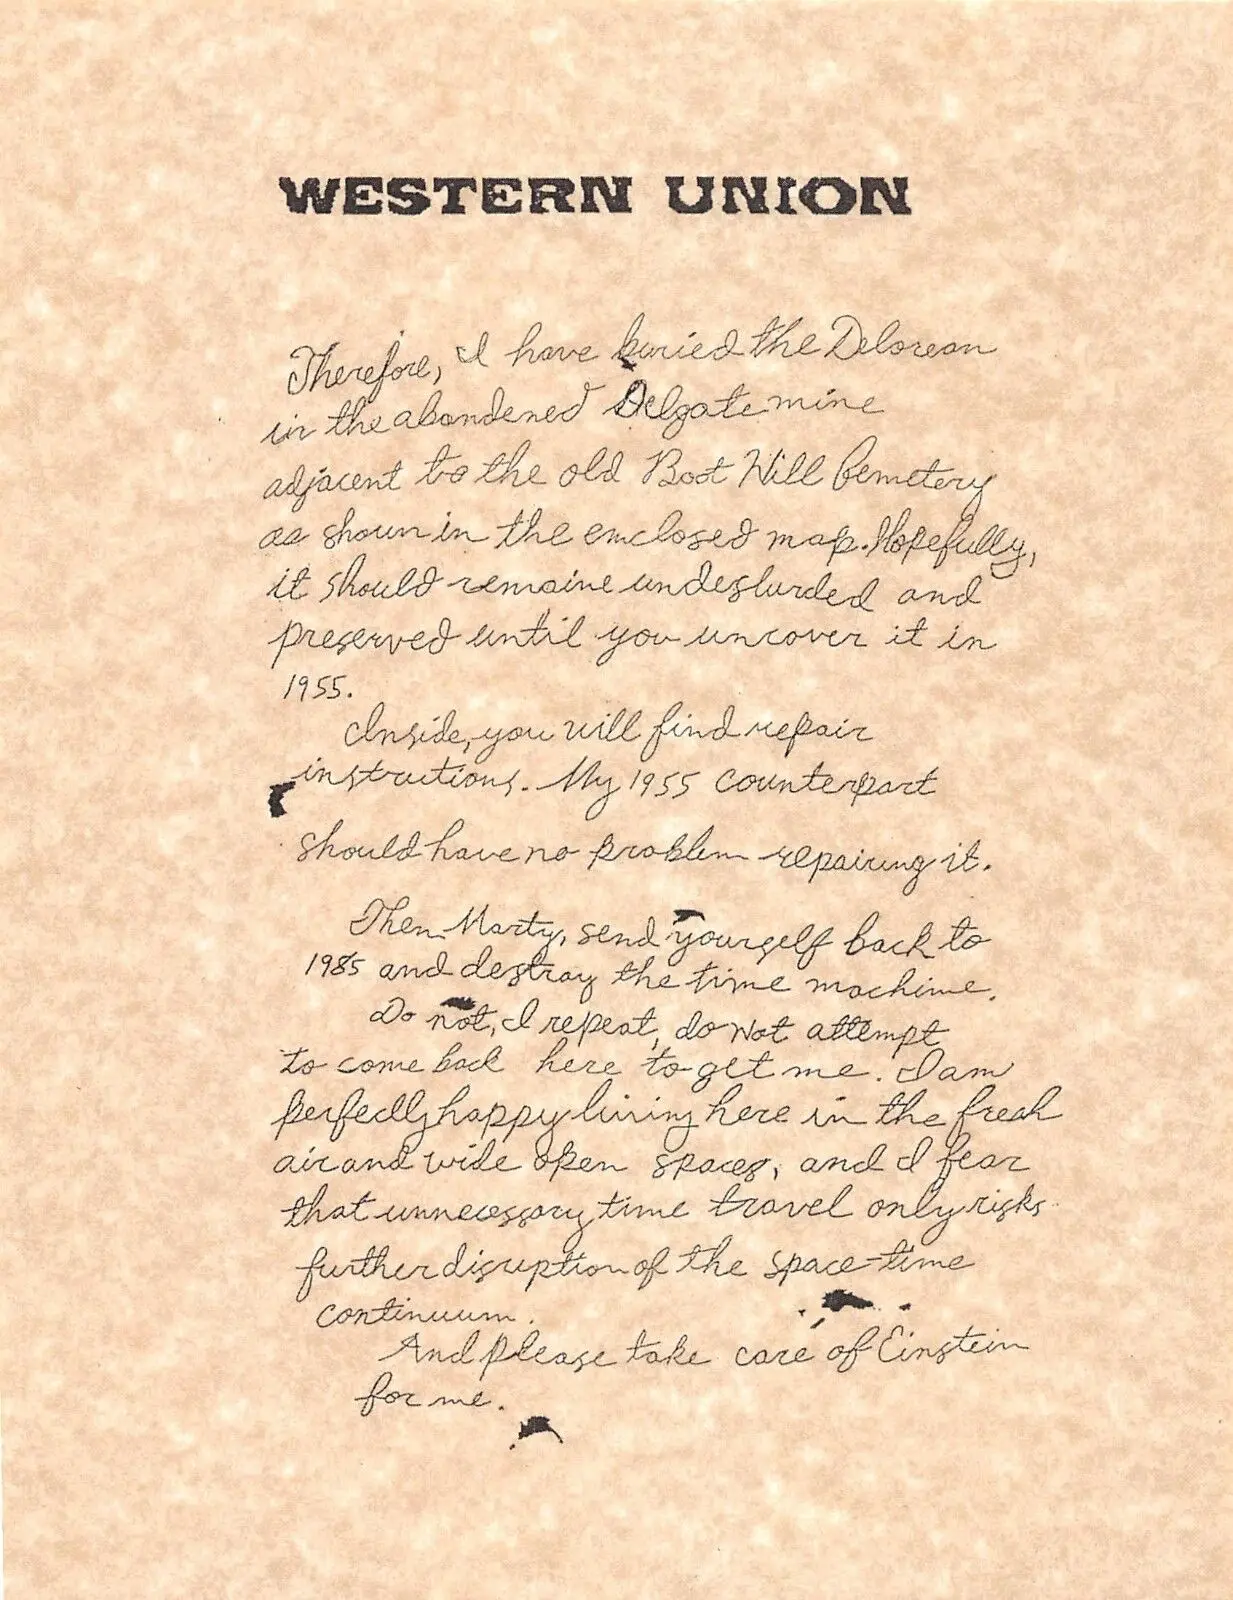 WESTERN UNION
Therefore, I have buried the Delorean
in the abondened Delgate mine
adjacent to the old Boot Hill Cemetery
as shown in the enclosed map. Hopefully,
it should remaine undesturded and
preserved until you uncover it in
1955.
Inside, you will find repair
instructions. My 1955 counterpart
should have no problem repairing it.
Then Marty, send yourself back to
1985 and destroy the time machine.
Do not, I repeat, do not attempt
to come back here to get me. I am
perfectly happy living here in the fresh
air and wide open spaces, and I fear
that unnecessary time travel only risks
further disruption of the space-time
continuum.
And please take care of Einstein
for me.